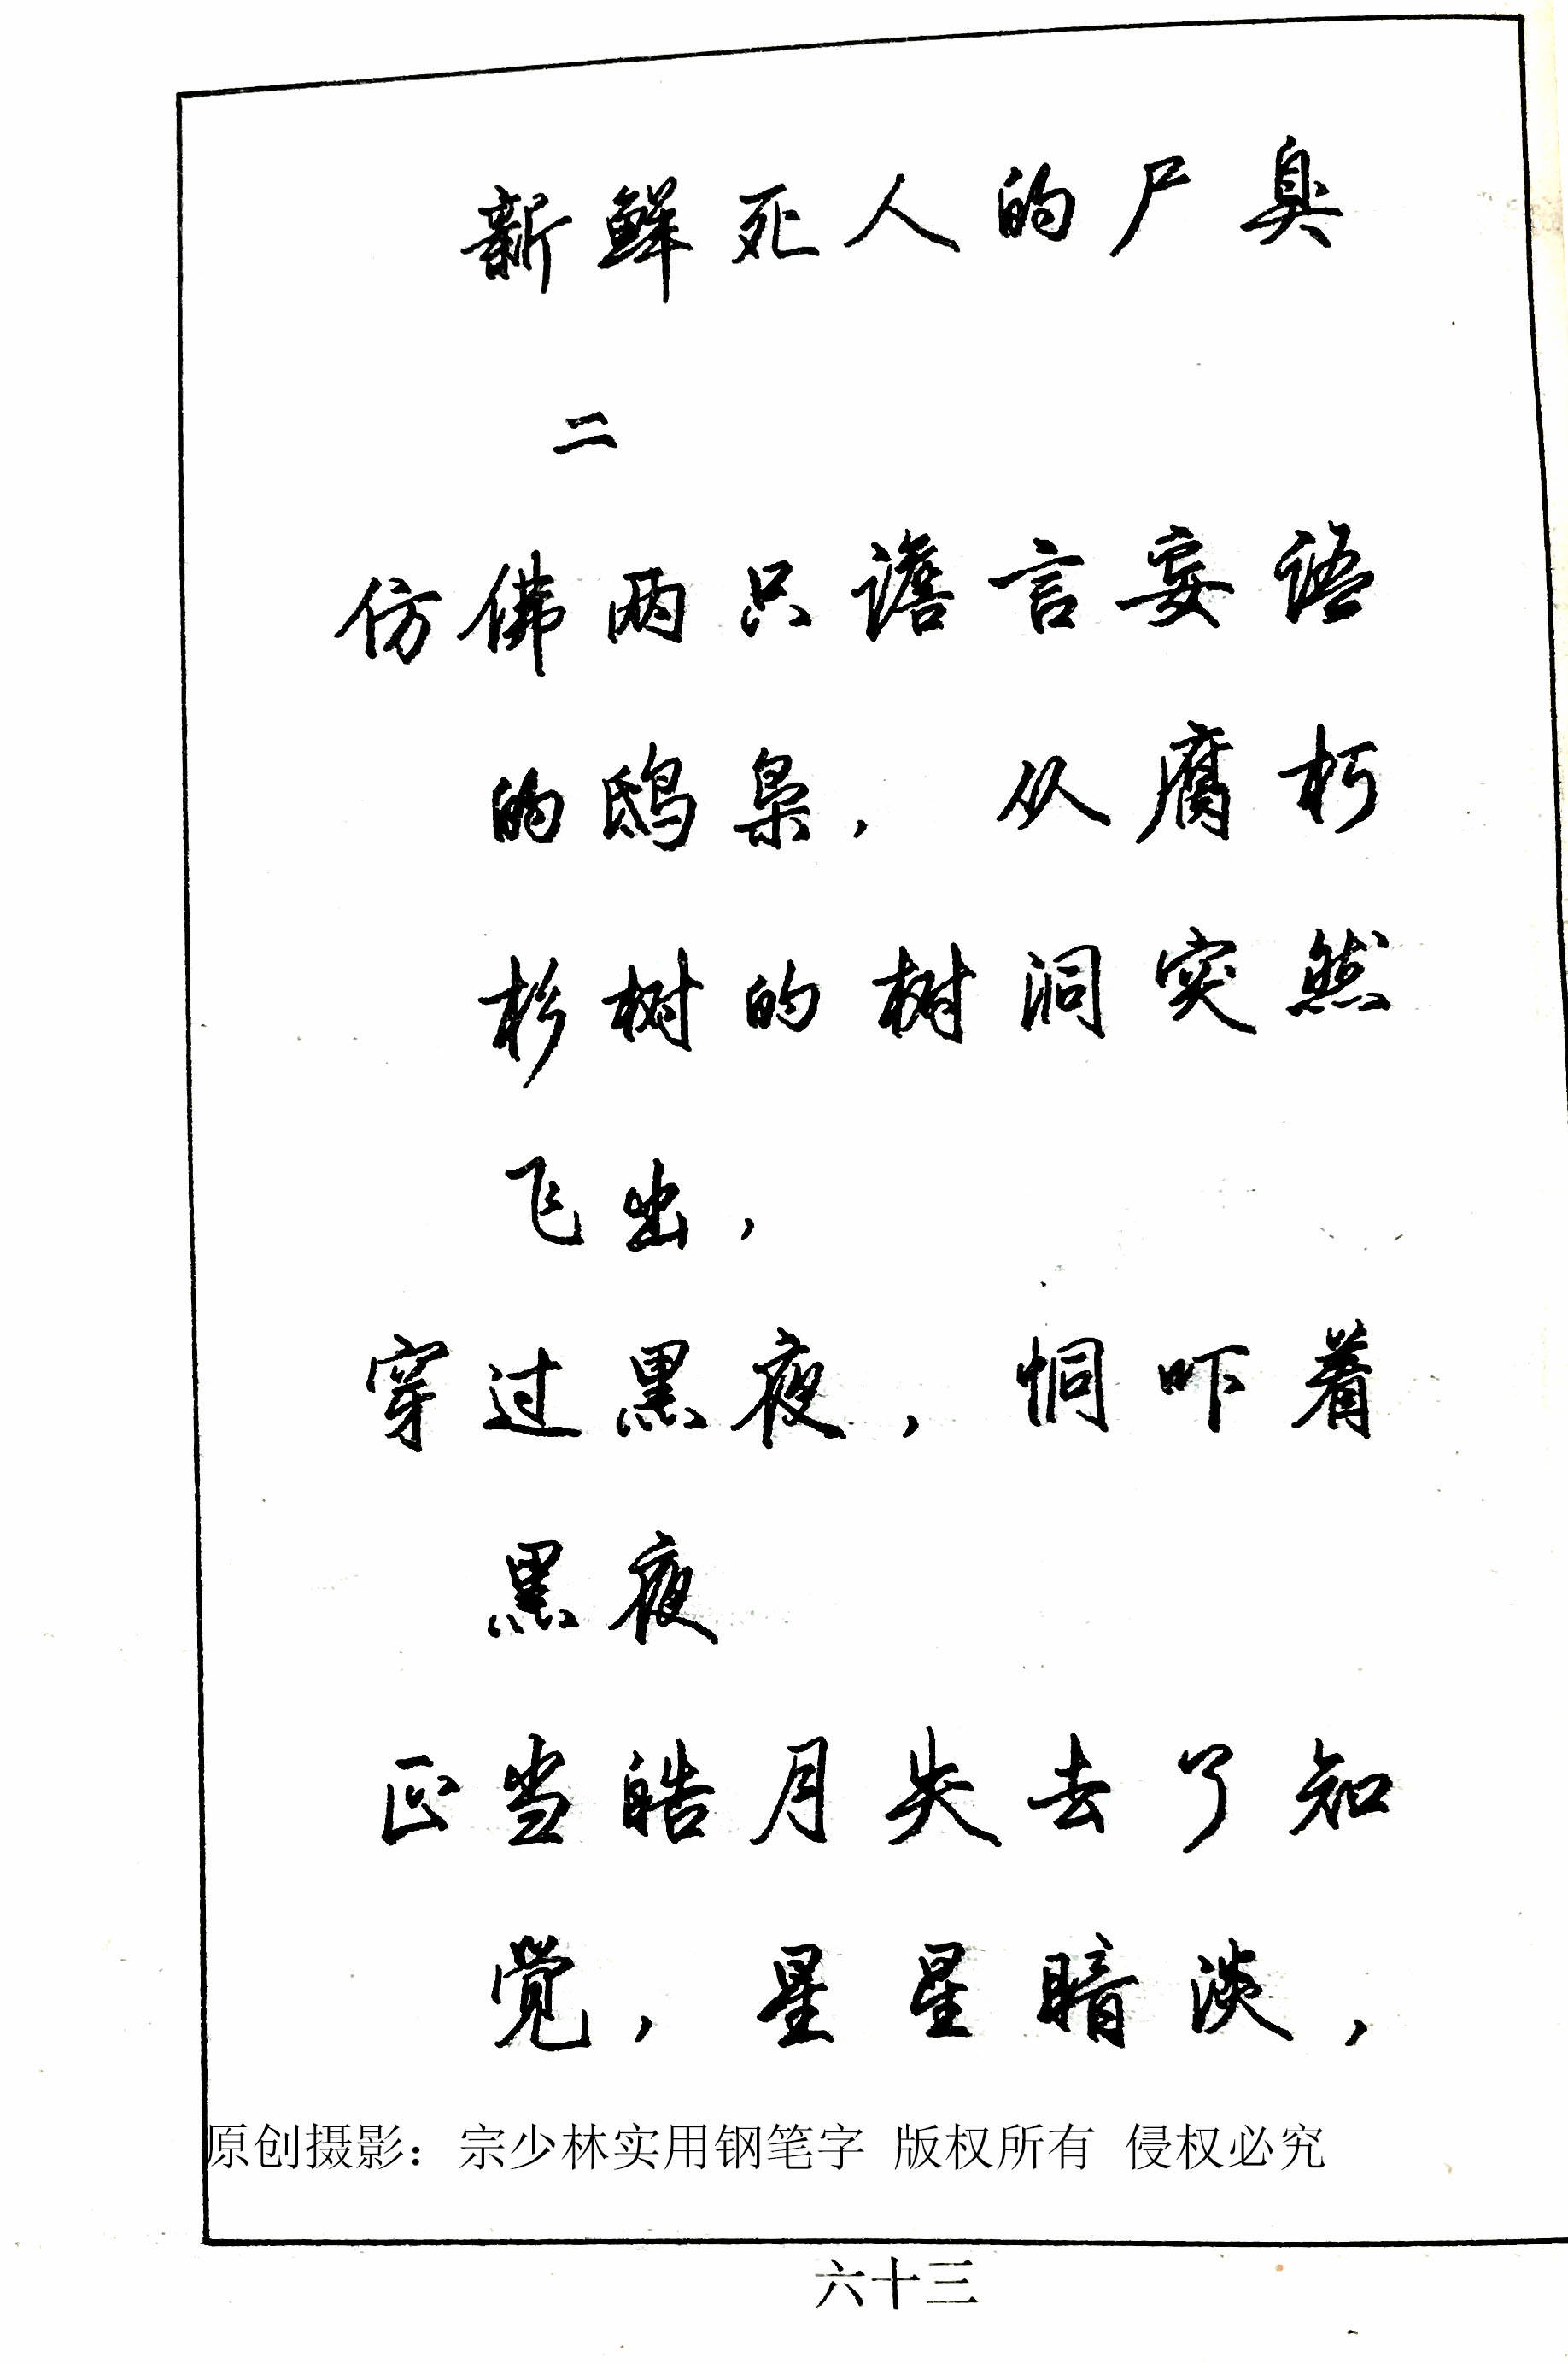 新鲜死人的尸臭
二
仿佛两只谵言妄语
的鸱枭，从腐朽
杉树的树洞突然
飞出，
穿过黑夜，恫吓着
黑夜
正当皓月失去了知
觉，星星暗淡，
原创摄影：宗少林实用钢笔字 版权所有 侵权必究
六十三